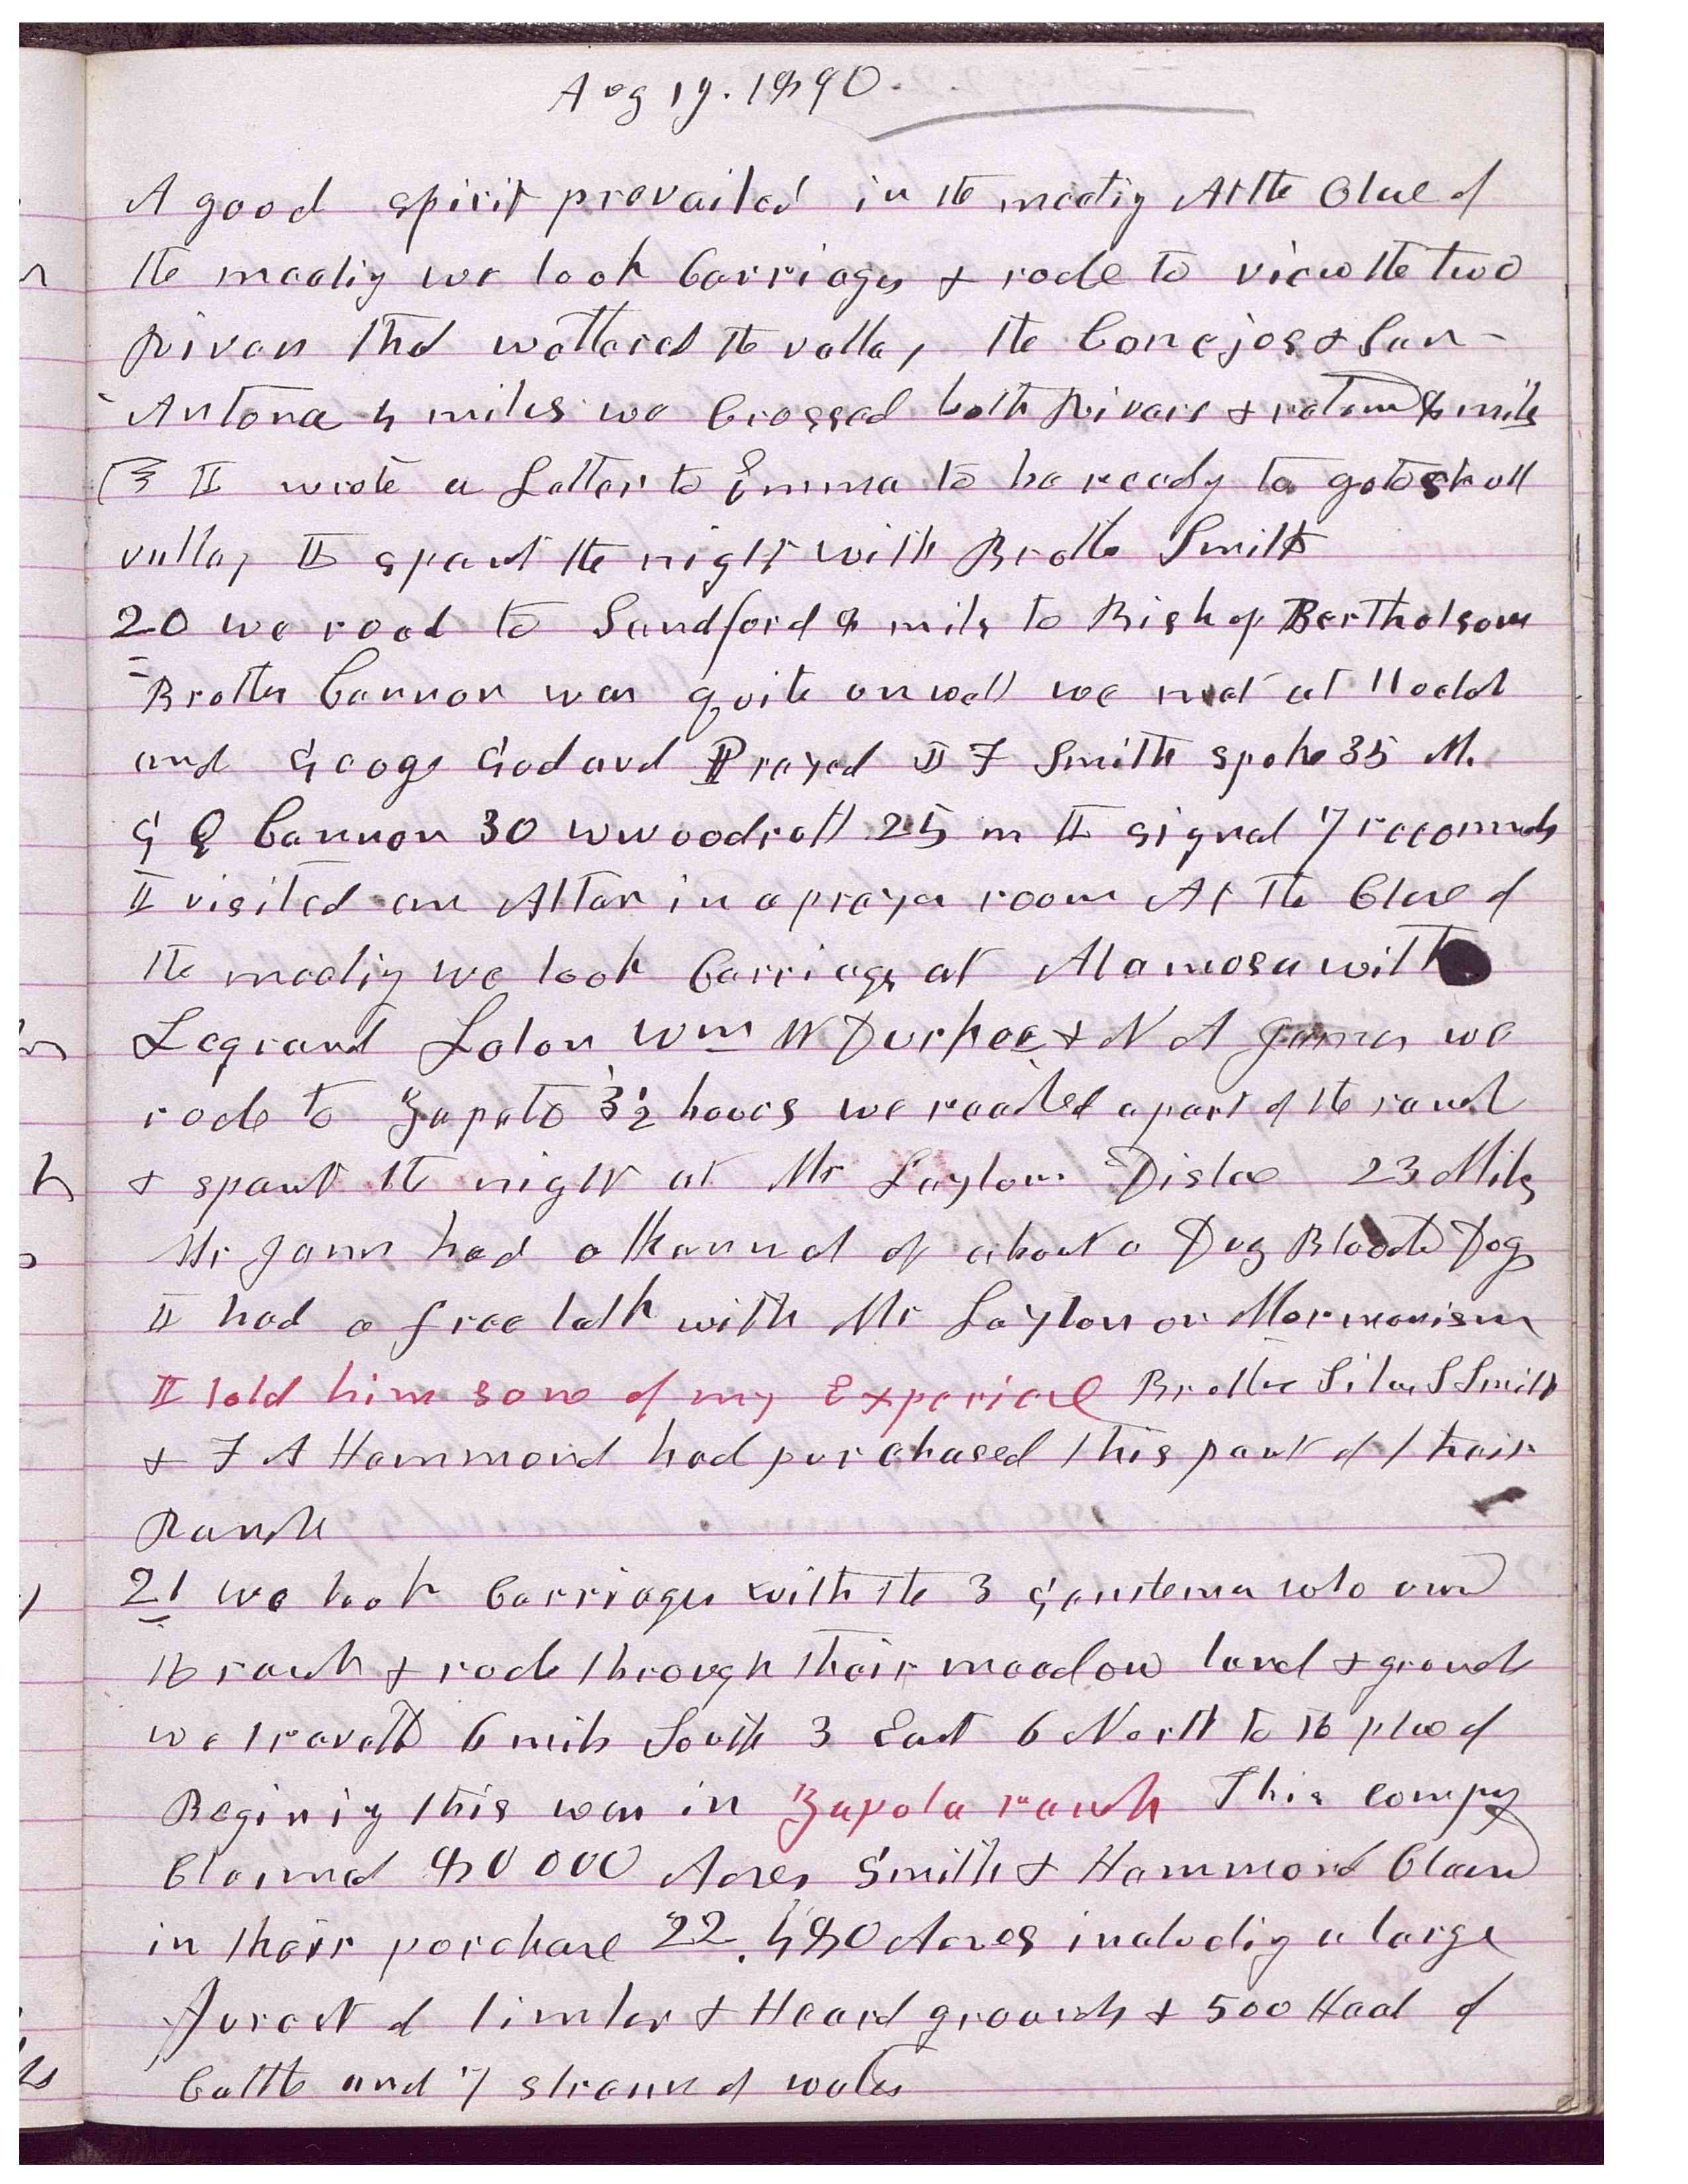 Aug 19. 1890.
A good spirit prevailed in the meetig At the Close of
the meetig we took Carriages & rode to view the two
Rivers that wattered the valley, the Conejos & San-
Antona 4 miles we Crossed both Rivers & returnd 8 miles
I wrote a Letter to Emma to be ready to go to skull
vally I spent the night with Brothe Smith
20 we rood to Sandford 8 mils to Bishop Bertholsom
Brother Cannon was quite unwell we met at Hodol
and George Godard Prayed J F Smith spoke 35 M.
G Q Cannon 30 W Woodruff 25 m I signed 7 recomends
I visited an Altar in a prayer room At the Close of
the meetig we took Carriage at Alamosa with
Legrand Loton Wm W Durkee & N A James we
rode to Zapato 3½ hours we visited a part of the ranch
& spent the night at Mr Laytons Distce 23 Miles
Mr James had a Kennel of about a Doz Blood Dogs
I had a free talk with Mr Layton on Mormonism
I told him some of my Experience Brother Silas S Smith
& F A Hammond had purchased this part of their
Ranch
21 we took Carriages with the 3 Gentlemen who own
the ranch & rode through their meadow land & grounds
we travelled 6 mils South 3 East 6 North to the place of
Beginig this was in Zapola ranch This compy
Claimed 80000 Acres Smith & Hammond Claim
in their porchase 22.480 Acres includig a large
Forest of timber & Heard grounds & 500 Head of
Cattle and 7 streams of water